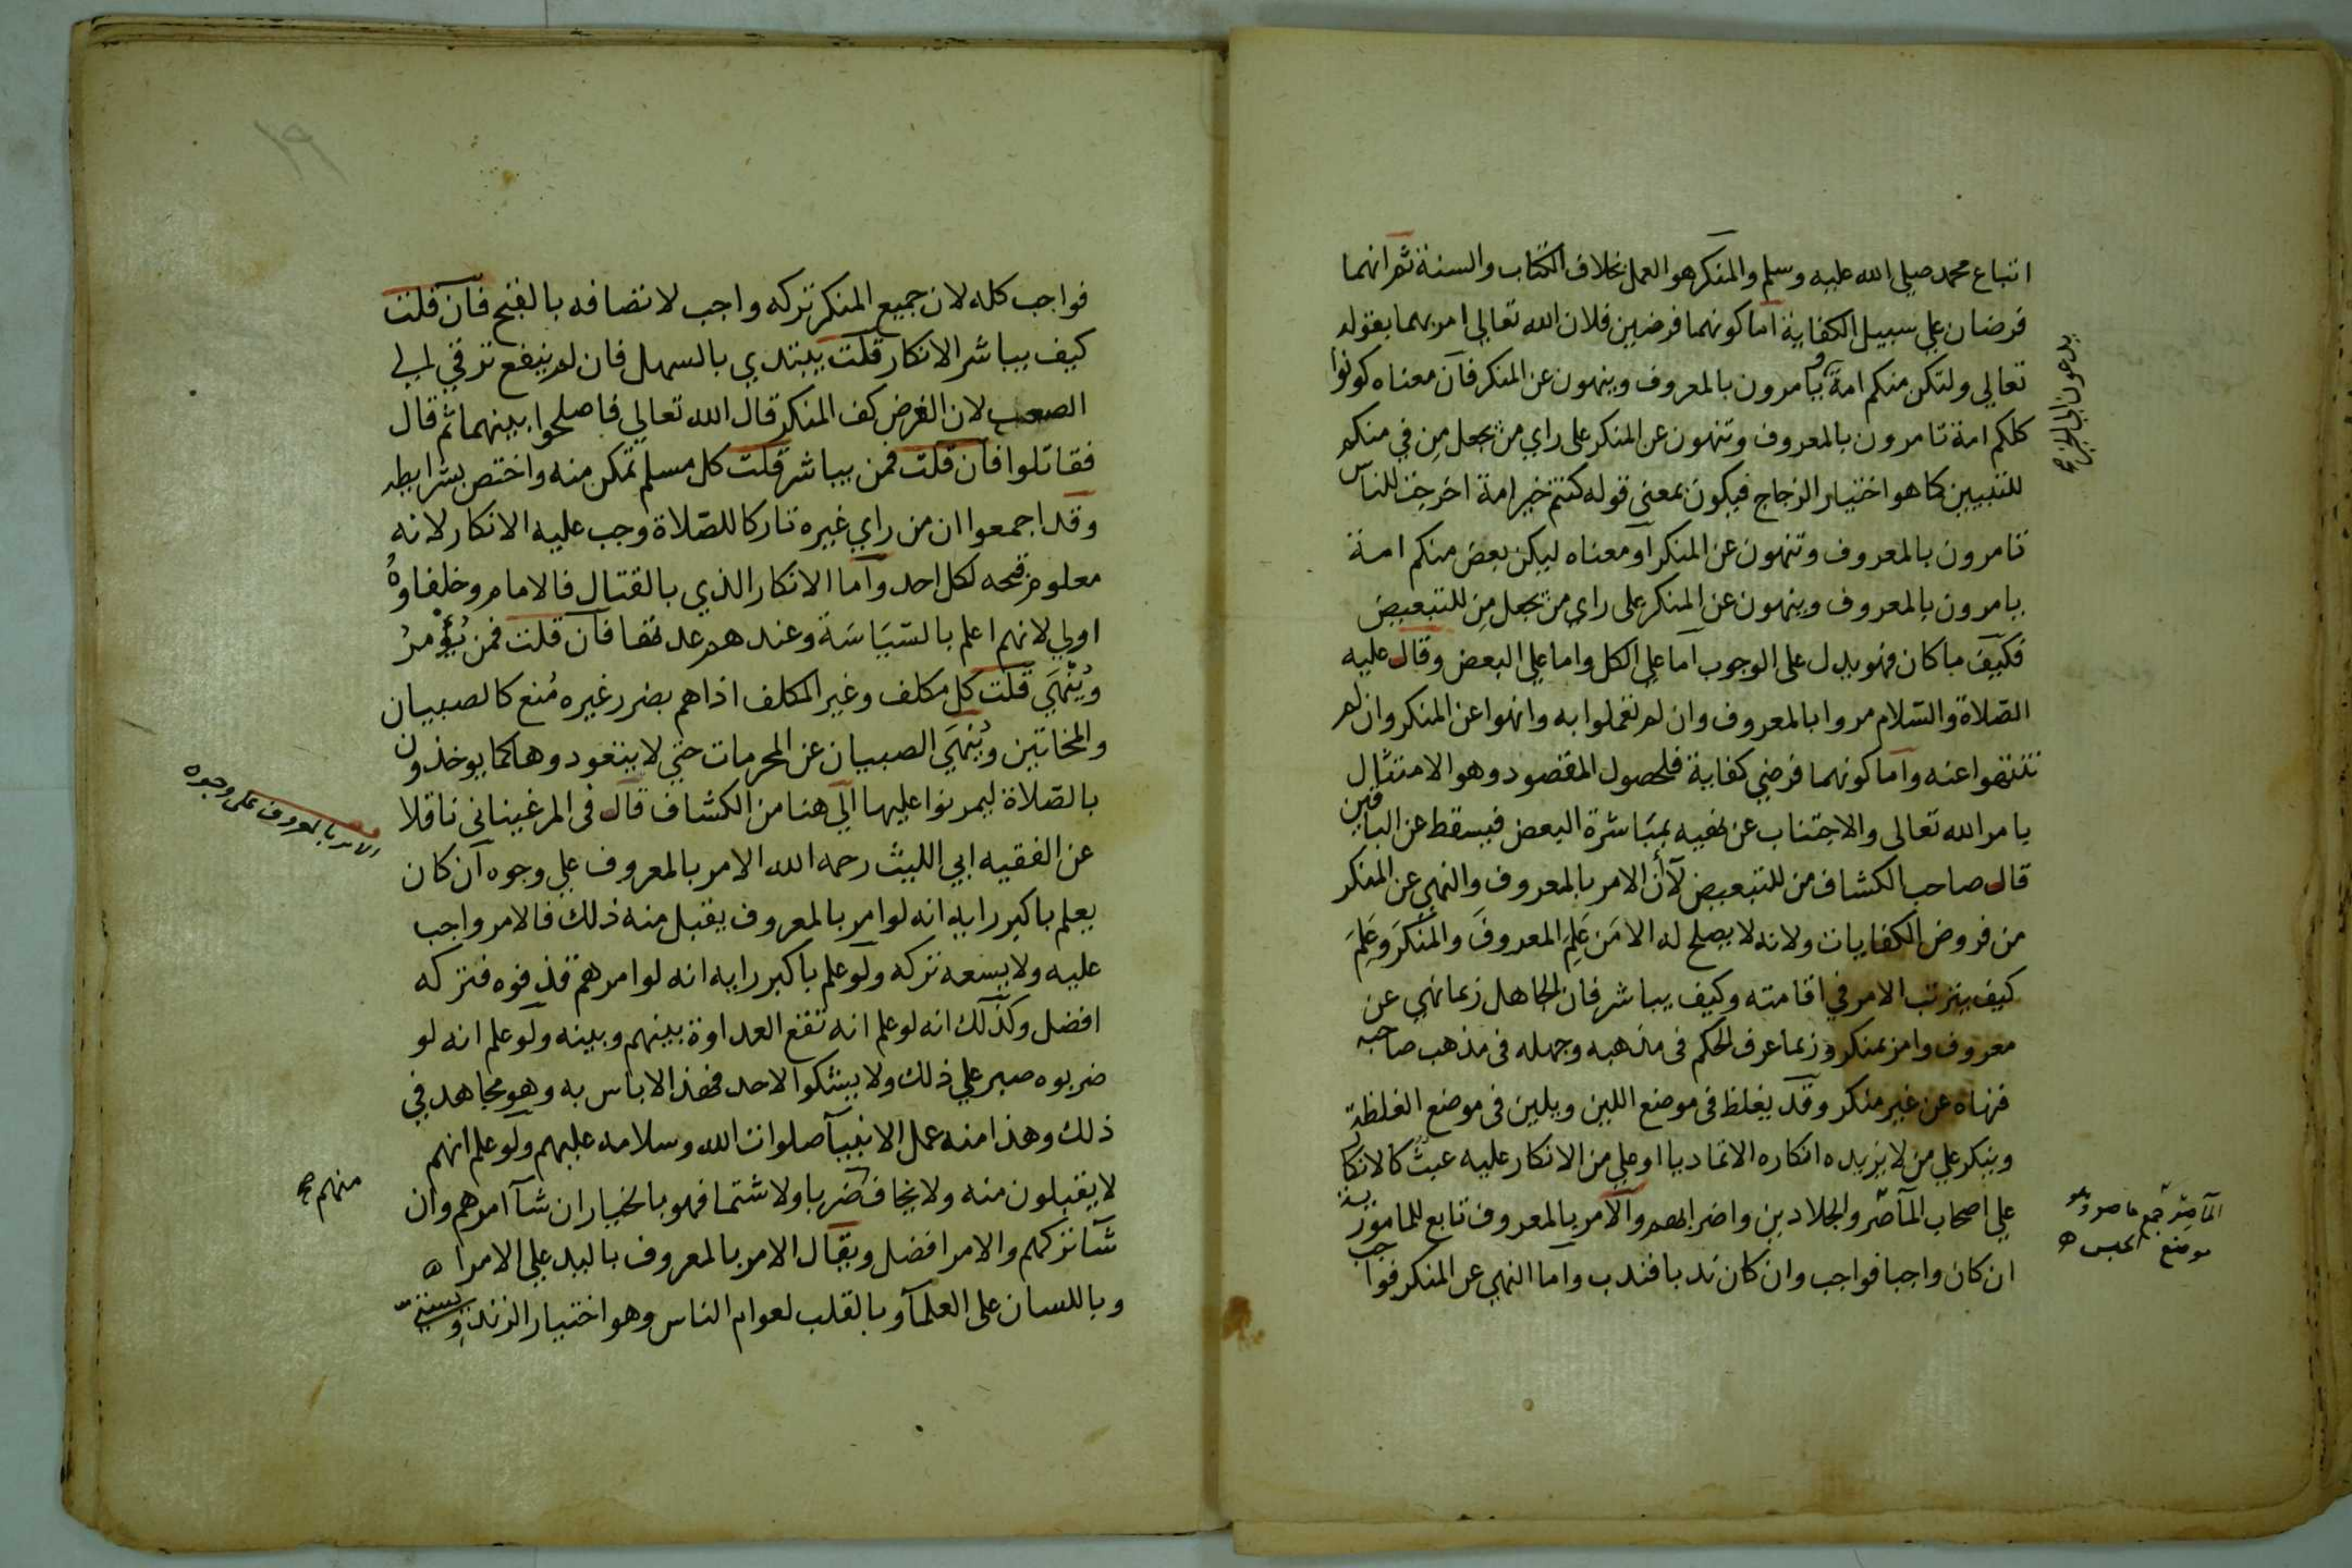 اتباع محمد صلى الله عليه وسلم والمنكر هو العمل بخلاف الكتاب والسنة ثم انهما
فرضان على سبيل الكفاية اما كونهما فرضين فلان الله تعالى امر بهما بقوله
تعالى ولتكن منكم امة يامرون بالمعروف وينهون عن المنكر فان معناه كونوا
يدعون الى الخير صح
كلكم امة تامرون بالمعروف وتنهون عن المنكر على راي من يجعل مِن في منكم
للتبيين كما هو اختيار الزجاج فيكون بمعنى قوله كنتم خير امة اخرجت للناس
تامرون بالمعروف وتنهون عن المنكر او معناه ليكن بعض منكم امة
يامرون بالمعروف وينهون عن المنكر على راي من يجعل مِن للتبعيض
فكيف ما كان فهو يدل على الوجوب اما على الكل واما على البعض وقال عليه
الصّلاة والسّلام مروا بالمعروف وان لم تعملوا به وانهوا عن المنكر وان لم
تنتهوا عنه واما كونهما فرضي كفاية فلحصول المقصود وهو الامتثال
بامر الله تعالى والاجتناب عن نهيه بمباشرة البعض فيسقط عن الباقين
قال صاحب الكشاف من للتبعيض لأن الامر بالمعروف والنهي عن المنكر
من فروض الكفايات ولانه لا يصلح له الا مَن عَلِمَ المعروفَ والمنكَرَ وعَلِمَ
كيف يترتب الامر في اقامته وكيف يباشر فان الجاهل ربما نهى عن
معروف وامر بمنكر وربما عرف الحكم في مذهبه وجهله في مذهب صاحبه
فنهاه عن غير منكر وقد يغلظ في موضع اللين ويلين في موضع الغلظة
وينكر على من لا يزيده انكاره الا تماديا او على من الانكار عليه عبثٌ كالانكار
على اصحاب المآصر والجلادين واضرابهم والامر بالمعروف تابع للمامور به
المآصر جمع ماصر وهو
موضع الحبس ه
ان كان واجبا فواجب وان كان ندبا فندب واما النهي عن المنكر فواجب
١٩
فواجب كله لان جميع المنكر تركه واجب لاتصافه بالقبح فان قلت
كيف يباشر الانكار قلت يبتدي بالسهل فان لم ينفع ترقي الى
الصعب لان الغرض كف المنكر قال الله تعالى فاصلحوا بينهما ثم قال
فقاتلوا فان قلت فمن يباشر قلت كل مسلم تمكن منه واختص بشرايطه
وقد اجمعوا ان من راي غيره تاركا للصّلاة وجب عليه الانكار لانه
معلوم قبحه لكل احد واما الانكار الذي بالقتال فالامام وخلفاوهُ
اولى لانهم اعلم بالسّيَاسَة وعندهم عدتها فان قلت فمن يُؤْمرُ
ويُنْهَي قلت كل مكلف وغير المكلف اذا هم بضرر غيره مُنع كالصبيان
والمجانين ويُنهَي الصبيان عن المحرمات حتى لا يتعودوها كما يوخذون
بالصّلاة ليمرنوا عليها الى هنا من الكشاف قال في المرغيناني ناقلا
الامر بالمعروف على وجوه
عن الفقيه ابي الليث رحمه الله الامر بالمعروف على وجوه ان كان
يعلم باكبر رايه انه لو امر بالمعروف يقبل منه ذلك فالامر واجب
عليه ولا يسعه تركه ولو علم باكبر رايه انه لو امرهم قذفوه فتركه
افضل وكذلك انه لو علم انه تقع العداوة بينهم وبينه ولو علم انه لو
ضربوه صبر على ذلك ولا يشكوا لاحد فهذا لا باس به وهو مجاهد في
ذلك وهذا منه عمل الانبيآ صلوات الله وسلامه عليهم ولو علم انهم
لا يقبلون منه ولا يخاف ضربا ولا شتما فهو بالخيار ان شآ امرهم وان
منهم صح
شآ تركهم والامر افضل ويقال الامر بالمعروف باليد على الامرا ه
وباللسان على العلمآ وبالقلب لعوام الناس وهو اختيار الزندويستي